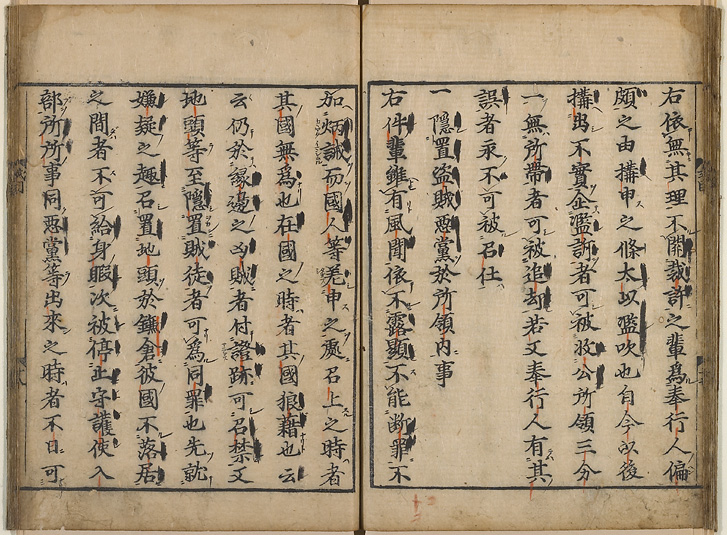 右依無其理不關裁許之輩爲奉行人偏
頗之由搆申之條太以濫吹也自今以後
搆出不實企濫訴者可被收公所領三分
一無所帶者可被追却若又奉行人有其
誤者永不可被召仕
一 隱置盜賊惡黨於所領内事
右件輩雖有風聞依不露顯不能断罪不
加炳誡而國人等差申之處召上之時者
其國無爲也在國之時者其國狼藉也云
云仍於縁邊之凶賊者付證跡可召禁又
地頭等至隱置賊徒者可爲同罪也先就
嫌疑之趣召置地頭於鎌倉彼國不落居
之間者不可給身暇次被停止守護使入
部所所事同惡黨等出來之時者不日可